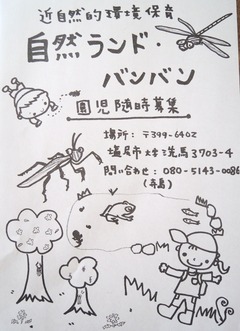 近自然的環境保育
自然ランド・
バンバン
園児随時募集
場所：〒399-6402
塩尻市大字洗馬3703-4
問い合わせ：080-5143-0086
(寺島)